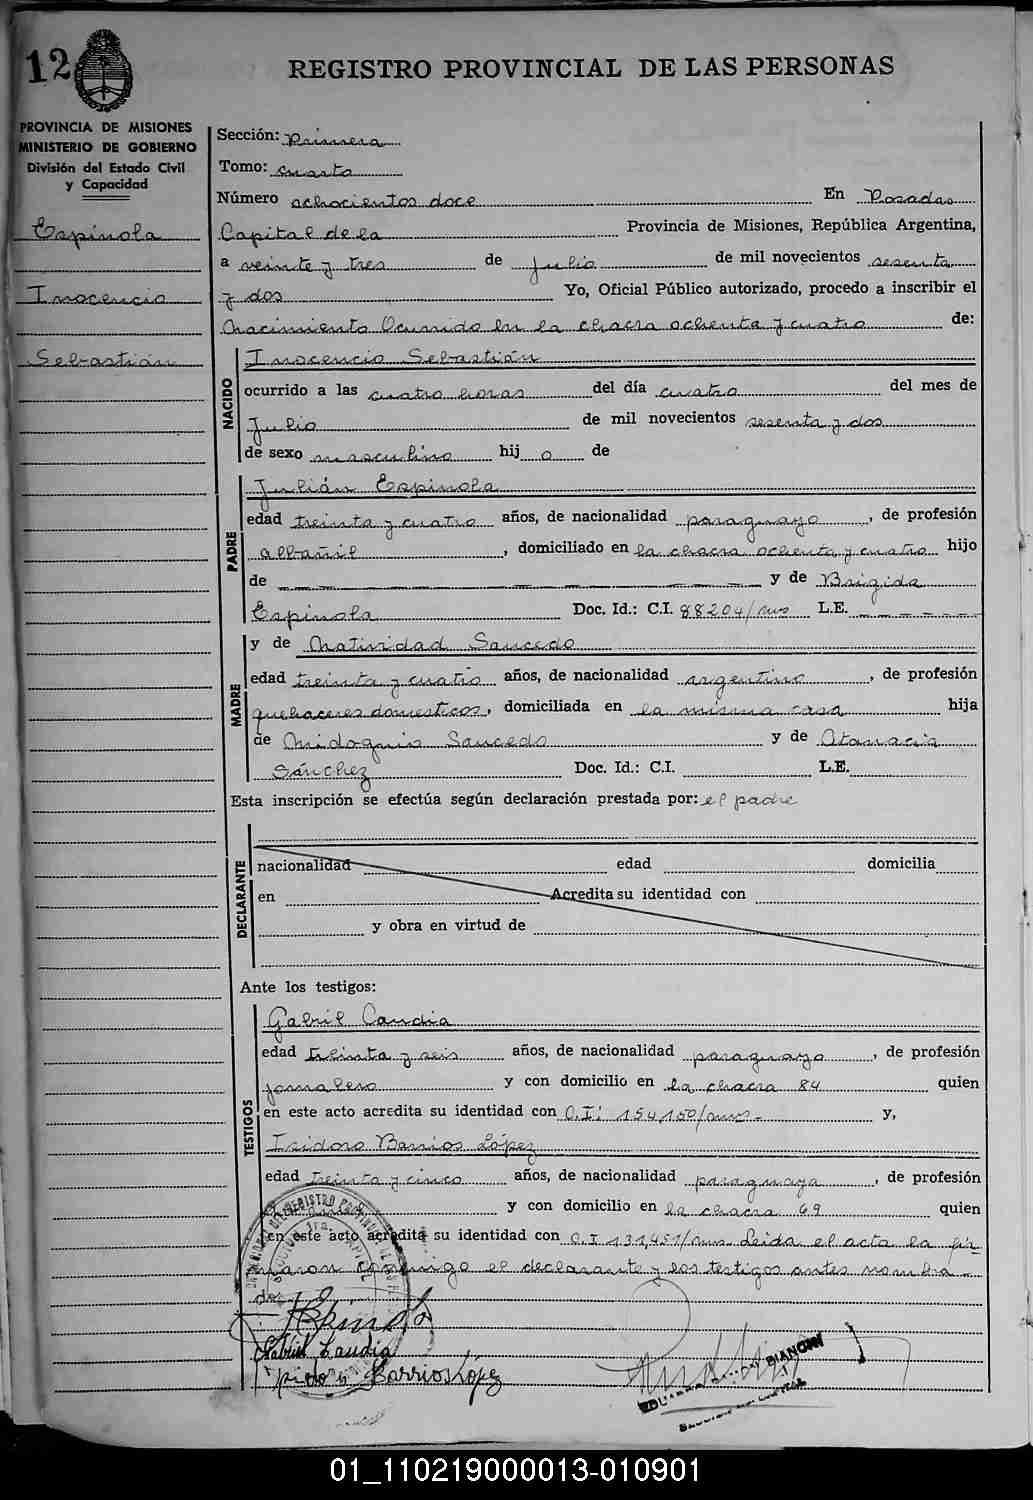 12
REGISTRO PROVINCIAL DE LAS PERSONAS
PROVINCIA DE MISIONES
MINISTERIO DE GOBIERNO
División del Estado Civil
y Capacidad
Espínola
Inocencio
Sebastián
Sección: Primera
Tomo: cuarto
Número ochocientos doce En Posadas
Capital de la Provincia de Misiones, República Argentina,
a veinte y tres de Julio de mil novecientos sesenta
y dos Yo, Oficial Público autorizado, procedo a inscribir el
Nacimiento Ocurrido en la chacra ochenta y cuatro de:
NACIDO
Inocencio Sebastián
ocurrido a las cuatro horas del día cuatro del mes de
Julio de mil novecientos sesenta y dos
de sexo masculino hij o de
PADRE
Julián Espínola
edad treinta y cuatro años, de nacionalidad paraguayo, de profesión
albañil, domiciliado en la chacra ochenta y cuatro hijo
de y de Brígida
Espínola Doc. Id.: C.I. 88204/mns L.E.
MADRE
y de Natividad Saucedo
edad treinta y cuatro años, de nacionalidad argentino, de profesión
quehaceres domesticos, domiciliada en la misma casa hija
de Saucedo y de Atanacia
Sánchez Doc. Id.: C.I. L.E.
Esta inscripción se efectúa según declaración prestada por: el padre
DECLARANTE
nacionalidad edad domicilia
en Acredita su identidad con
y obra en virtud de
Ante los testigos:
TESTIGOS
Gabril Candia
edad treinta y seis años, de nacionalidad paraguayo, de profesión
jornalero y con domicilio en la chacra 84 quien
en este acto acredita su identidad con C.I: 154,150/mns.- y,
Isidoro Barrios López
edad treinta y cinco años, de nacionalidad paraguaya, de profesión
y con domicilio en la chacra 69 quien
en este acto acredita su identidad con C.I 131,451/mns. Leida el acta la fir
maron conmigo el declarante y los testigos antes nombra-
dos.
Gabriel Candia
Barrios López
BIANCHI
01_110219000013-010901